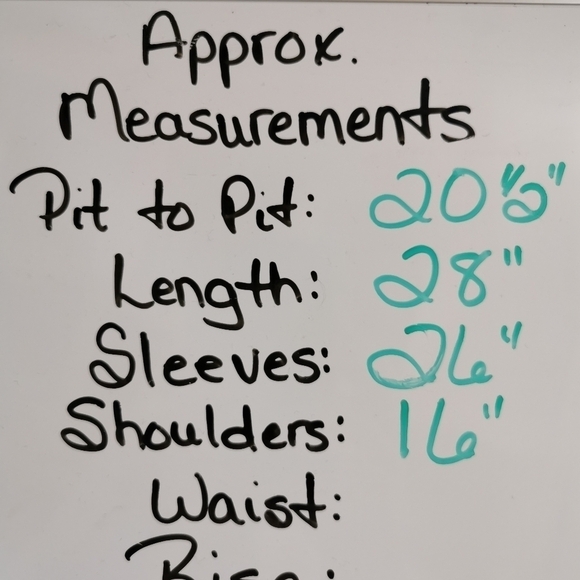 Approx.
Measurements
Pit to Pit: 20 1/2"
Length: 28"
Sleeves: 26"
Shoulders: 16"
Waist:
Rise: